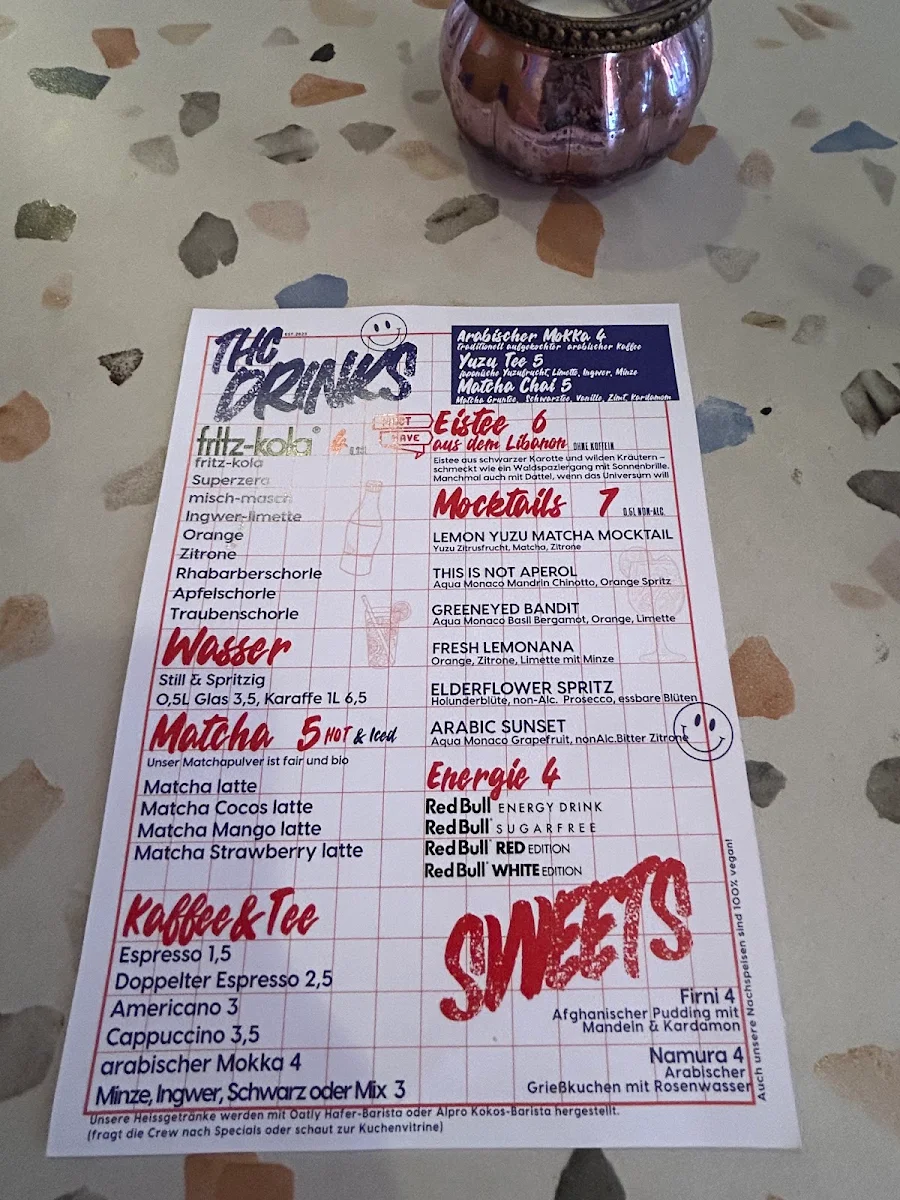 THC
EST. 2023
DRINKS
fritz-kola® 4 0,33L
fritz-kola
Superzero
misch-masch
Ingwer-limette
Orange
Zitrone
Rhabarberschorle
Apfelschorle
Traubenschorle
Wasser
Still & Spritzig
0,5L Glas 3,5, Karaffe 1L 6,5
Matcha 5 HOT & Iced
Unser Matchapulver ist fair und bio
Matcha latte
Matcha Cocos latte
Matcha Mango latte
Matcha Strawberry latte
Kaffee & Tee
Espresso 1,5
Doppelter Espresso 2,5
Americano 3
Cappuccino 3,5
arabischer Mokka 4
Minze, Ingwer, Schwarz oder Mix 3
Arabischer Mokka 4
traditionell aufgekochter arabischer Kaffee
Yuzu Tee 5
japanische Yuzufrucht, Limette, Ingwer, Minze
Matcha Chai 5
Matcha Grüntee, Schwarztee, Vanille, Zimt, Kardamom
MUST
HAVE
Eistee 6
aus dem Libanon OHNE KOFFEIN
Eistee aus schwarzer Karotte und wilden Kräutern –
schmeckt wie ein Waldspaziergang mit Sonnenbrille.
Manchmal auch mit Dattel, wenn das Universum will
Mocktails 7 0,5L NON-ALC.
LEMON YUZU MATCHA MOCKTAIL
Yuzu Zitrusfrucht, Matcha, Zitrone
THIS IS NOT APEROL
Aqua Monaco Mandrin Chinotto, Orange Spritz
GREENEYED BANDIT
Aqua Monaco Basil Bergamot, Orange, Limette
FRESH LEMONANA
Orange, Zitrone, Limette mit Minze
ELDERFLOWER SPRITZ
Holunderblüte, non-Alc. Prosecco, essbare Blüten
ARABIC SUNSET
Aqua Monaco Grapefruit, nonAlc.Bitter Zitrone
Energie 4
Red Bull® ENERGY DRINK
Red Bull® SUGARFREE
Red Bull® RED EDITION
Red Bull® WHITE EDITION
SWEETS
Firni 4
Afghanischer Pudding mit
Mandeln & Kardamon
Namura 4
Arabischer
Grießkuchen mit Rosenwasser
Auch unsere Nachspeisen sind 100% vegan!
Unsere Heissgetränke werden mit Oatly Hafer-Barista oder Alpro Kokos-Barista hergestellt.
(fragt die Crew nach Specials oder schaut zur Kuchenvitrine)